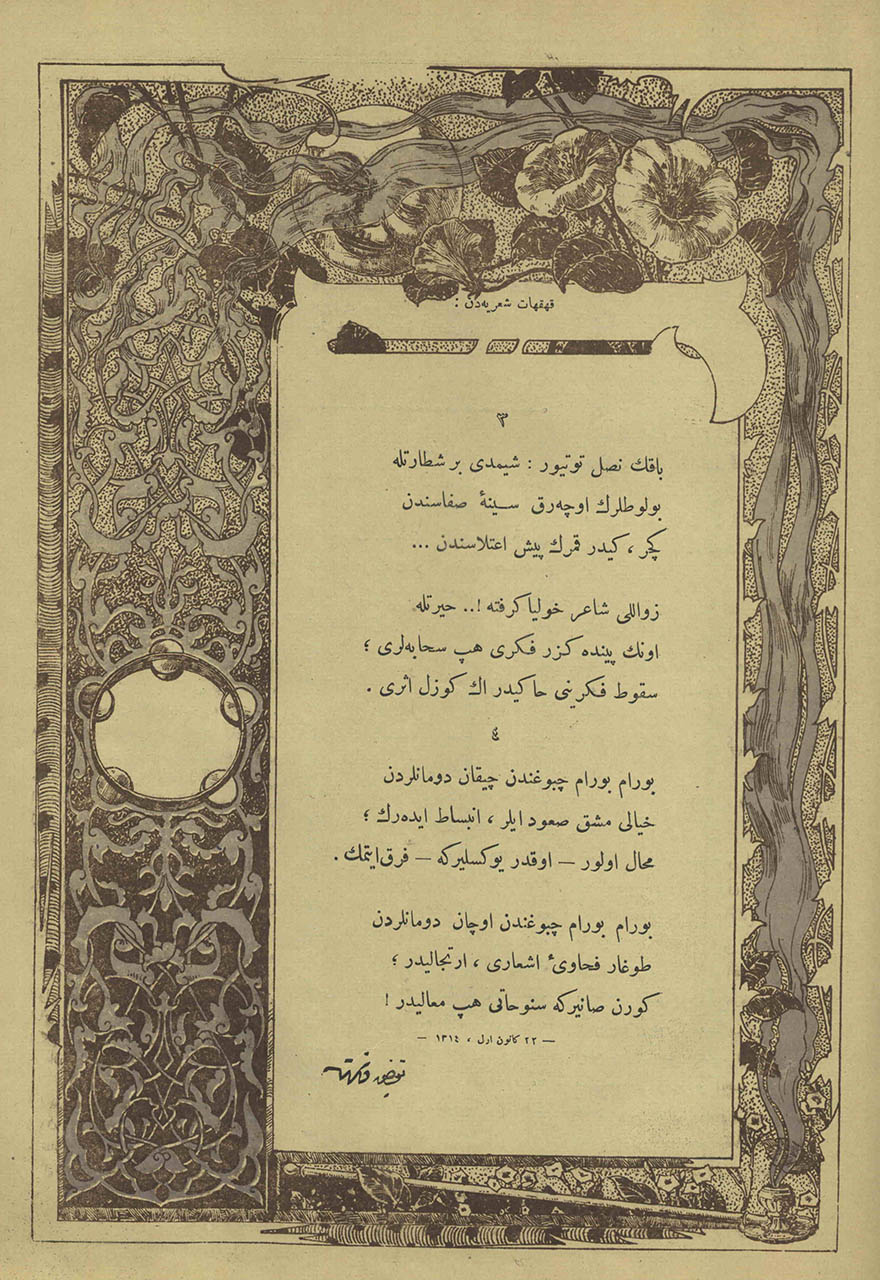 قهقهات شعریه‌دن :
٣
باقك نصل توتیور : شیمدی بر شطارتله
بولوطلرك اوچه‌رق سینهٔ صفاسندن
كچر ، كیدر قمرك پیش اعتلاسندن ...
زواللی شاعر خولیا كرفته !.. حیرتله
اونك پینده كزر فكری هپ سحابه‌لری ؛
سقوط فكرینی حاكیدر اك كوزل اثری .
٤
بورام بورام چبوغندن چیقان دومانلردن
خیالی مشق صعود ایلر ، انبساط ایده‌رك ؛
محال اولور — اوقدر یوكسلیركه — فرق ایتمك .
بورام بورام چبوغندن اوچان دومانلردن
طوغار فحاویٔ اشعاری ، ارتجالیدر ؛
كورن صانیركه سنوحاتی هپ معالیدر !
— ٢٢ كانون اول ، ١٣١٤ —
توفیق فكرت